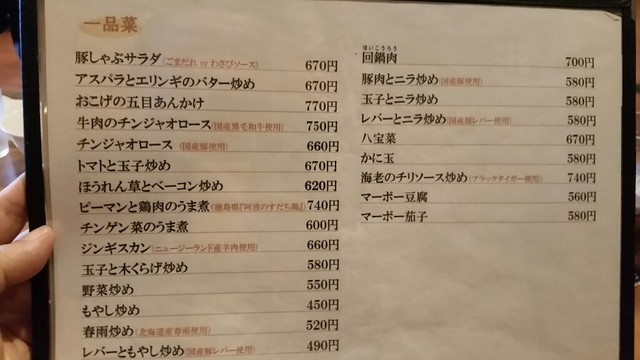 一品菜
豚しゃぶサラダ(ごまだれ or わさびソース) 670円
アスパラとエリンギのバター炒め 670円
おこげの五目あんかけ 770円
牛肉のチンジャオロース(国産黒毛和牛使用) 750円
チンジャオロース(国産豚使用) 660円
トマトと玉子炒め 670円
ほうれん草とベーコン炒め 620円
ピーマンと鶏肉のうま煮(徳島県『阿波のすだち鶏』) 740円
チンゲン菜のうま煮 600円
ジンギスカン(ニュージーランド産羊肉使用) 660円
玉子と木くらげ炒め 580円
野菜炒め 550円
もやし炒め 450円
春雨炒め(北海道産春雨使用) 520円
レバーともやし炒め(国産豚レバー使用) 490円
ほいこうろう
回鍋肉 700円
豚肉とニラ炒め(国産豚使用) 580円
玉子とニラ炒め 580円
レバーとニラ炒め(国産豚レバー使用) 580円
八宝菜 670円
かに玉 580円
海老のチリソース炒め(ブラックタイガー使用) 740円
マーボー豆腐 560円
マーボー茄子 580円